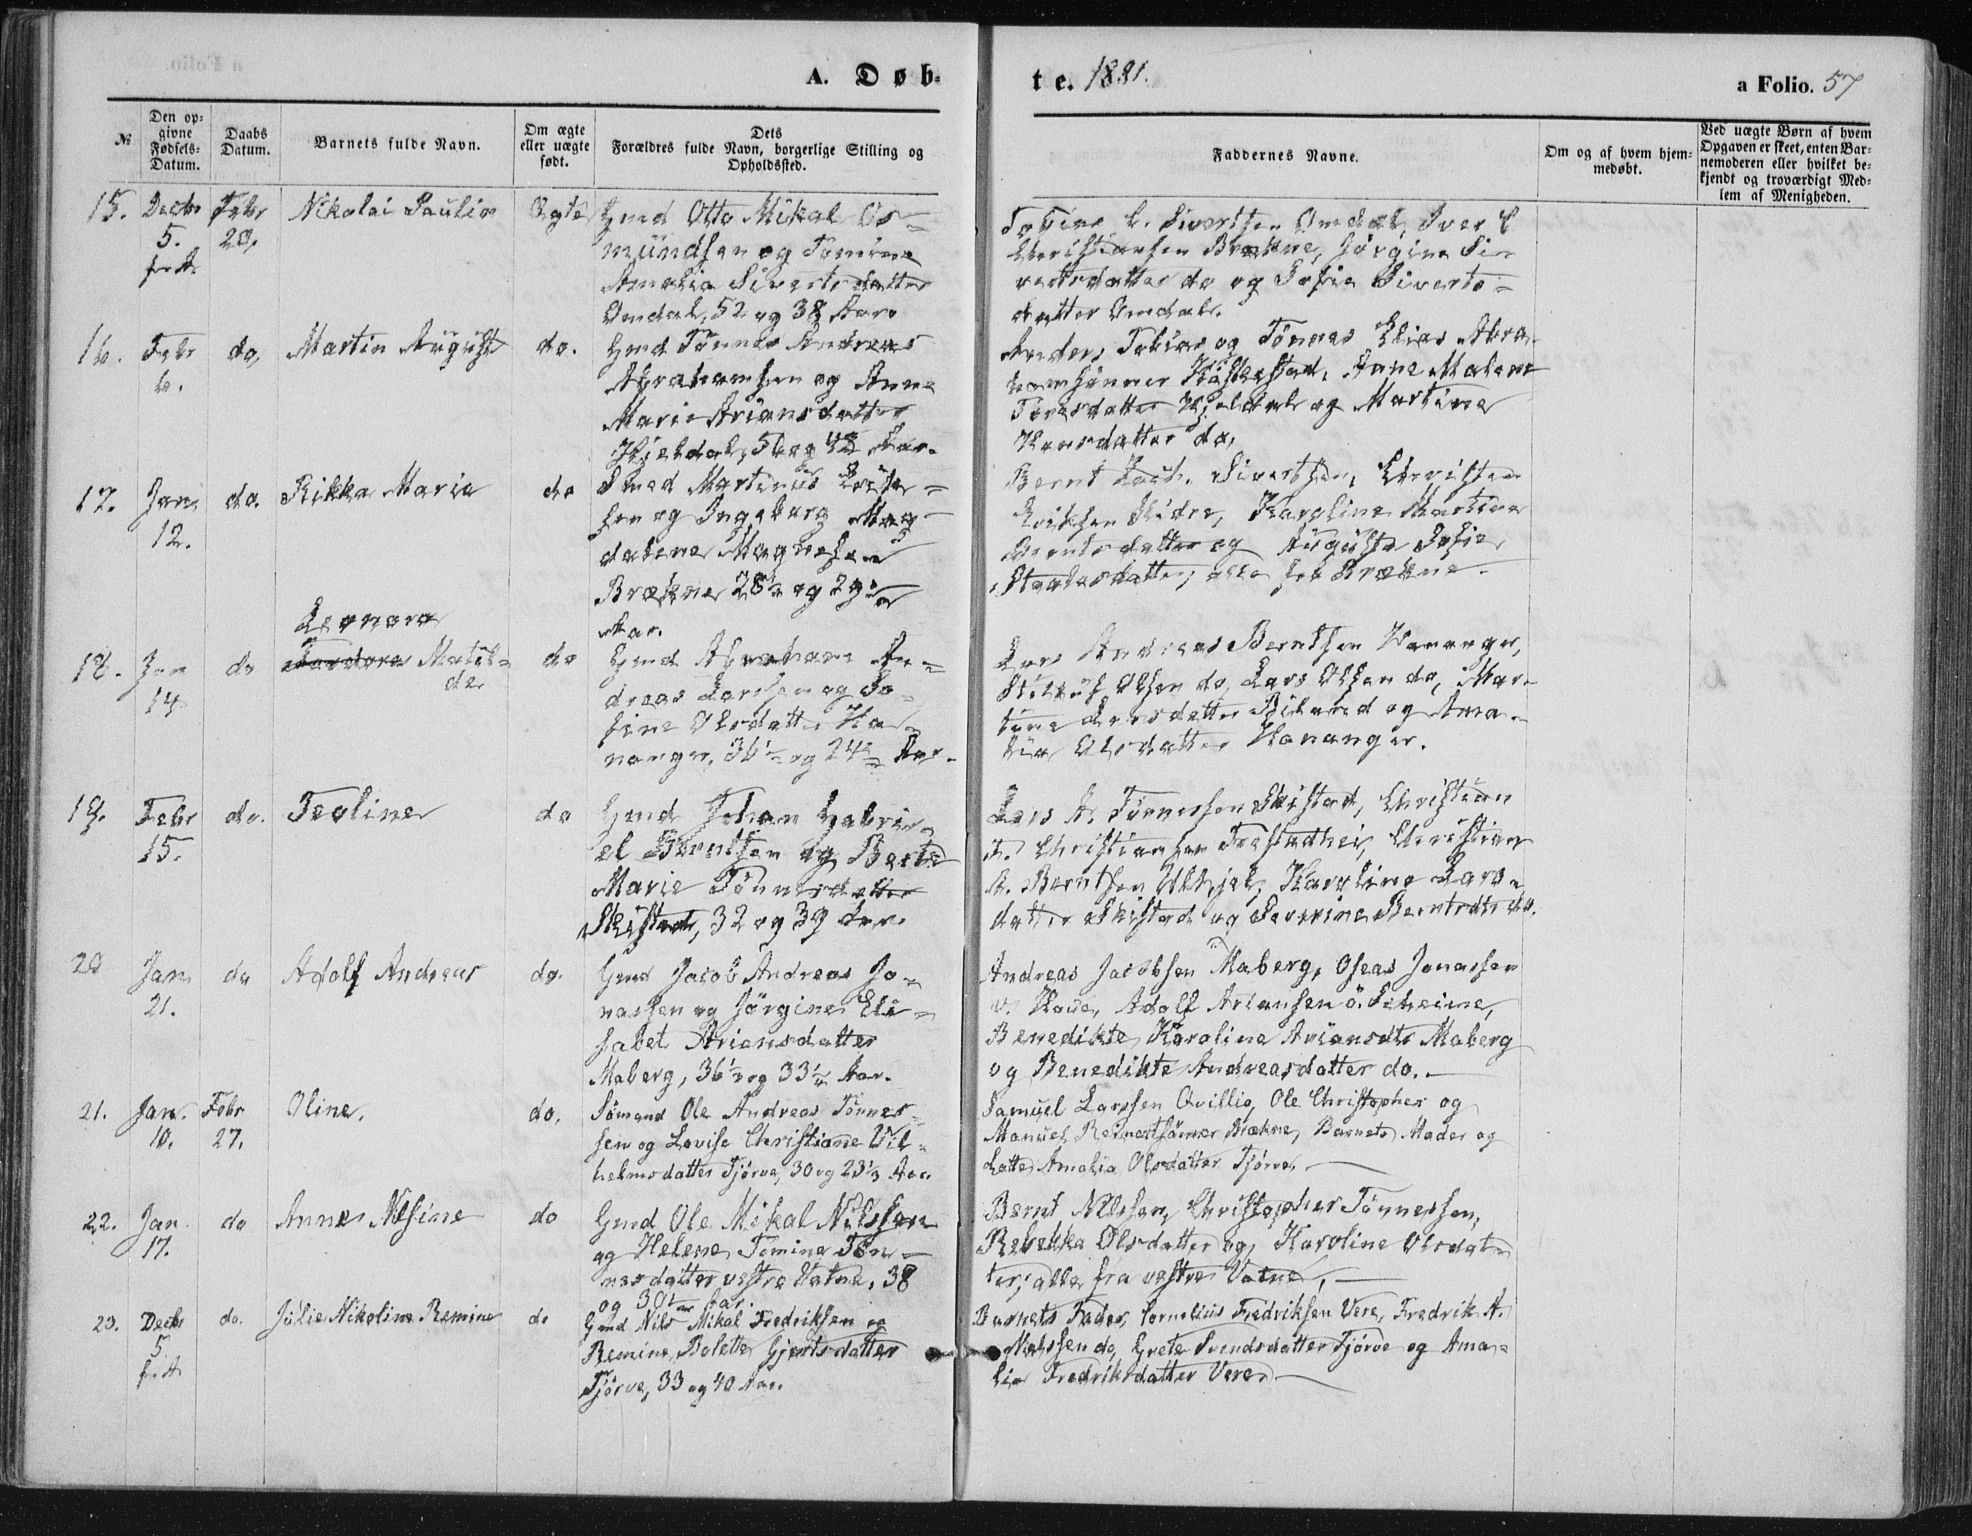 A. Døb-
te. 1881.
a Folio. 57
№
Den op-
givne
Fødsels-
Datum.
Daabs
Datum.
Barnets fulde Navn.
Om ægte
eller uægte
født.
Dets
Forældres fulde Navn, borgerlige Stilling og
Opholdssted.
Faddernes Navne.
Om og af hvem hjem-
medøbt.
Ved uægte Børn af hvem
Opgaven er skeet, enten Bar-
nemoderen eller hvilket be-
kjendt og troværdigt Med-
lem af Menigheden.
15.
Decbr
5.
f. A.
Febr
20.
Nikolai Paulin
Ægte
Gmd Otto Mikal Os-
mundsen og Tomine
Amalia Sivertsdatter
Omdal, 52 og 38 Aar.
Tobias L. Sivertsen Omdal, Iver C
Christiansen Brække, Jørgine Si-
vertsdatter do og Sofie Siverts-
datter Omdal.
16.
Febr
6.
do.
Martin August
do.
Gmd Tønnes Andreas
Abrahamsen og Anne
Marie Ariansdatter
Kjeldal, 50 og 43 Aar.
Anders, Tobias og Tønnes Elias Abra-
hamsønner, Anne Malene
datter Kjeldal og Martine
Hansdatter do.
17.
Jan.
12.
do.
Rikka Maria
do
Smed Martinus Erik-
sen og Ingeborg Mag-
dalena Magnesen
Brækne 28½ og 29
Aar.
Bernt Zach. Sivertsen, Christen
Eriksen, Karoline Martine
Berntsdatter og Augusta Sofie
datter, alle fra Brækne.
18.
Jan
14
do
Leonora
Teodora Matil-
de
do
Gmd Abraham An-
dreas Larssen og So-
fine Olsdatter Ha-
nanger, 36½ og 24½ Aar.
Lars Andreas Berntsen Hananger,
Olsen do, Lars Olsen do, Mar-
tine Larsdatter Biland og Ama-
lia Olsdatter Hananger.
19.
Febr
15.
do.
Teoline
do
Gmd Johan Gabri-
el Berntsen og Berte
Marie Tønnesdatter
Skistad, 32 og 39 Aar.
Lars A. Tønnessen Skistad, Christian
F. Christiansen, Christian
A. Berntsen, Karoline Lars-
datter Skistad og Severine Berntsdtr do.
20
Jan
21.
do
Adolf Andreas
do.
Gmd Jacob Andreas Jo-
nassen og Jørgine Eli-
sabet Ariansdatter
Maberg, 36½ og 33½ Aar.
Andreas Jacobsen Maberg, Oseas Jonassen
v. Haue, Adolf Ariansen ö. Skeime,
Benedikte Karoline Ariansdtr Maberg
og Benedikte Andreasdatter do.
21.
Jan.
10.
Febr
27.
Oline.
do.
Sömand Ole Andreas Tönnes-
sen og Lovise Christiane Vil-
helmsdatter Tjörve, 30 og 23½ Aar.
Samuel Larssen Qvillio, Ole Christopher og
Manuel Reinertsönner Brækne, Barnets Moder og
Lotte Amalia Olsdatter Tjörve.
22.
Jan.
17.
do
Anne Nilsine
do
Gmd Ole Mikal Nilssen
og Helene Tomine Tön-
nesdatter vestre Vatne, 38
og 30½ Aar.
Bernt Nilssen, Christopher Tönnessen,
Rebekka Olsdatter og Karoline Olsdat-
ter; alle fra vestre Vatne,
23.
Decbr
5
f. A.
do.
Julie Nikoline Remine
do
Gmd Nils Mikal Fredriksen og
Remine Bolette Gjertsdatter
Tjörve, 33 og 40 Aar.
Barnets Fader, Cornelius Fredriksen Vere, Fredrik A.
Nilssen do, Grete Svendsdatter Tjörve og Ama-
lia Fredriksdatter Vere